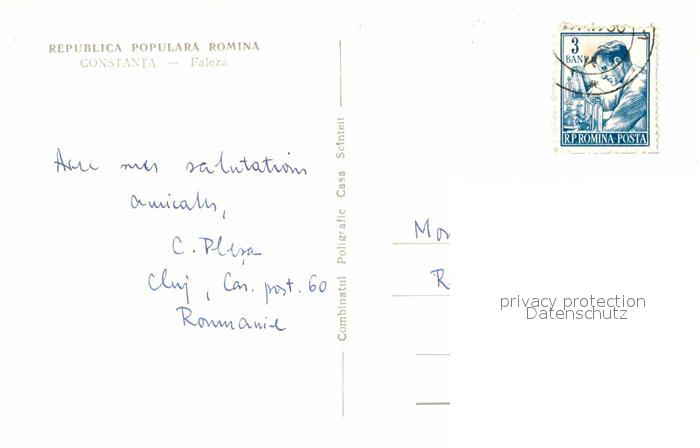 REPUBLICA POPULARĂ ROMÎNĂ
CONSTANȚA — Faleza
3
BANI
R.P.ROMINA POSTA
Avec mes salutations
amicales,
C. Pleșa
Cluj, Cas. post. 60
Roumanie
Combinatul Poligrafic Casa Scînteii
Mon
R
privacy protection
Datenschutz